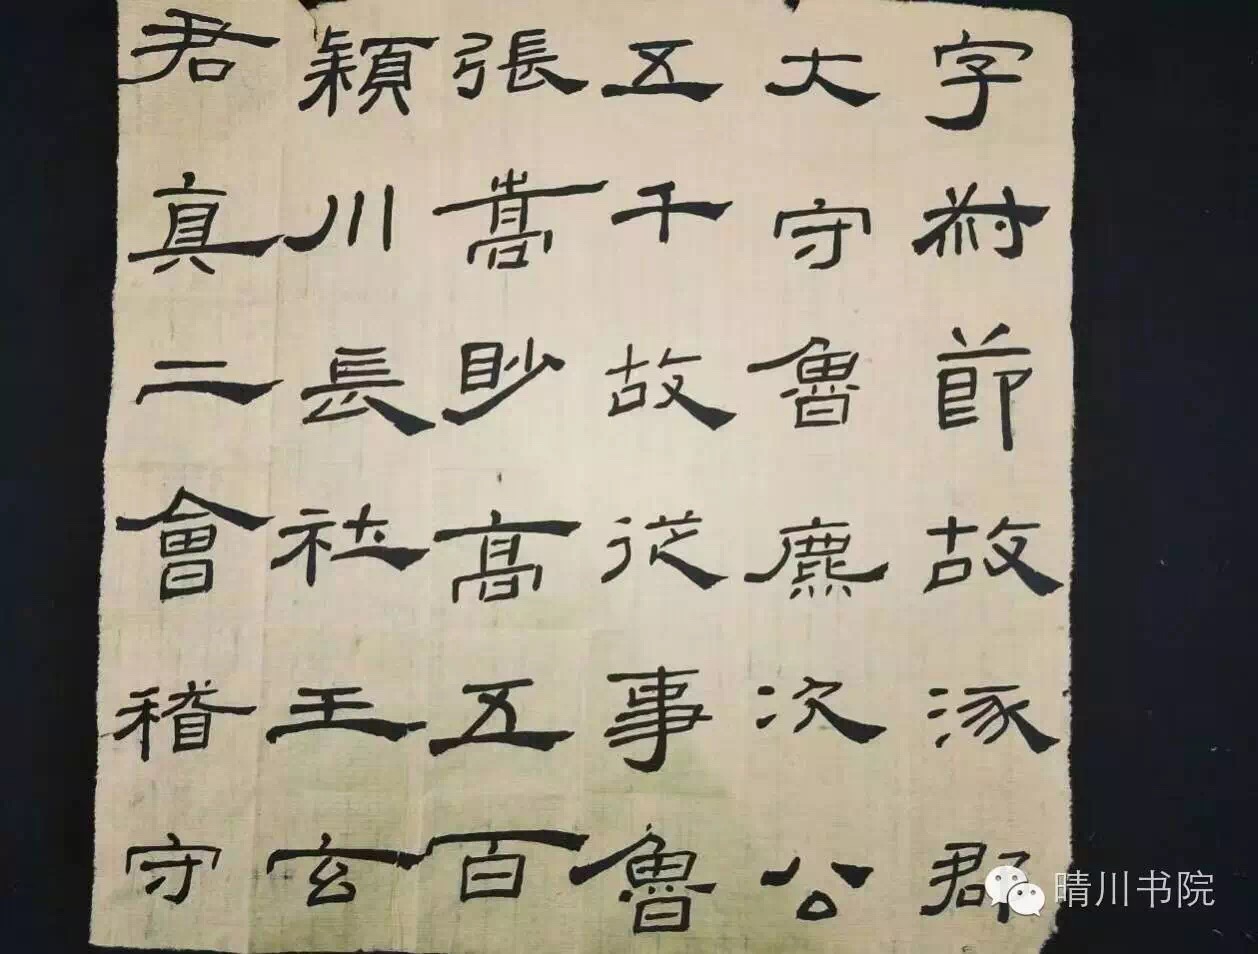 字叔節故涿郡
大守魯麃次公
五千故從事魯
張嵩眇高五百
穎川長社王玄
君真二會稽守
晴川书院